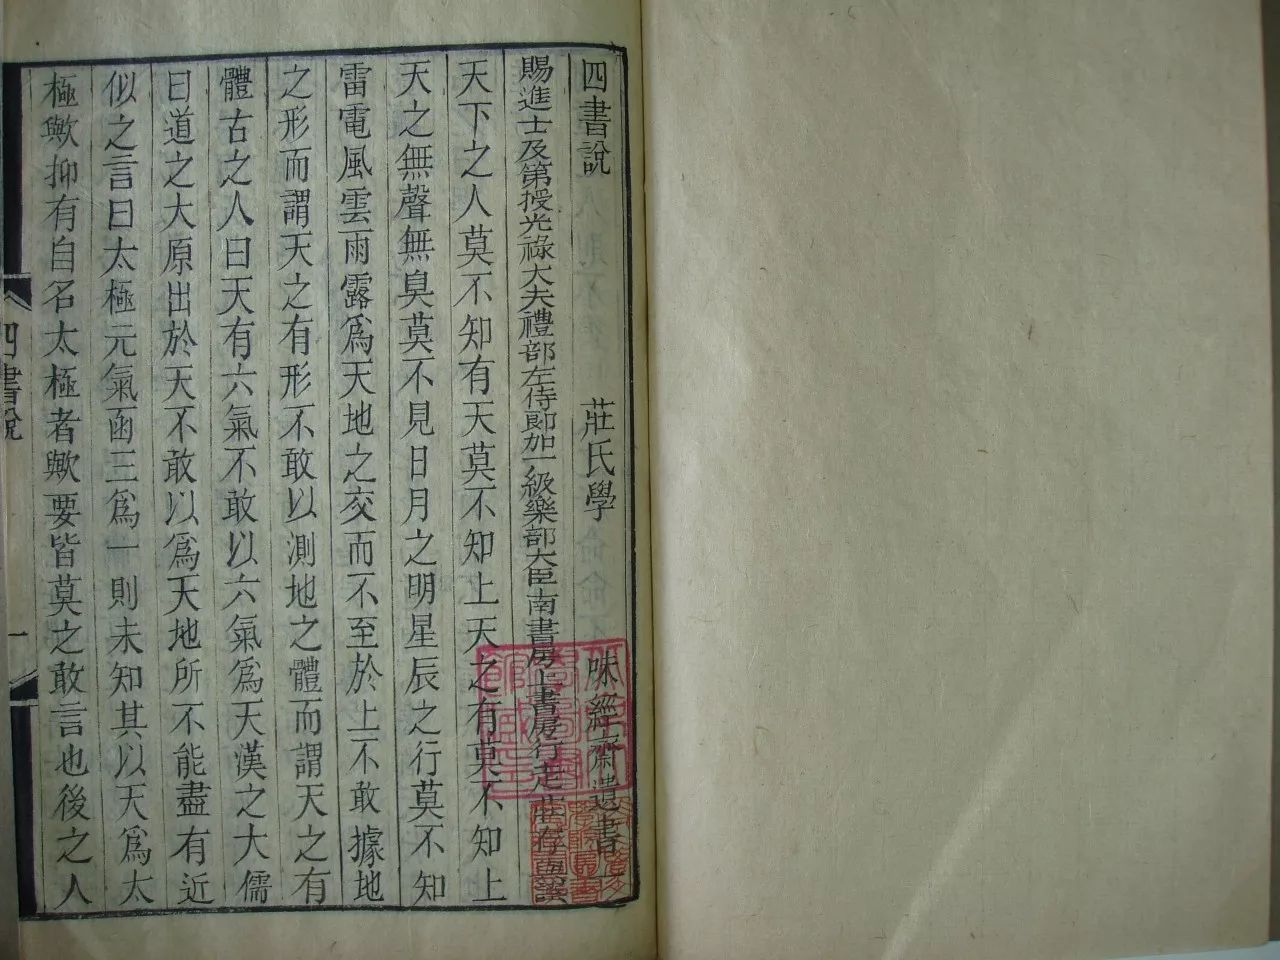 四書說 莊氏學 味經齋遺書
賜進士及第授光祿大夫禮部左侍郎加一級樂部大臣南書房上書房行走莊存與譔
天下之人莫不知有天莫不知上天之有莫不知上
天之無聲無臭莫不見日月之明星辰之行莫不知
雷電風雲雨露爲天地之交而不至於上不敢據地
之形而謂天之有形不敢以測地之體而謂天之有
體古之人曰天有六氣不敢以六氣爲天漢之大儒
曰道之大原出於天不敢以爲天地所不能盡有近
似之言曰太極元氣函三爲一則未知其以天爲太
極歟抑有自名太極者歟要皆莫之敢言也後之人
四書說
一